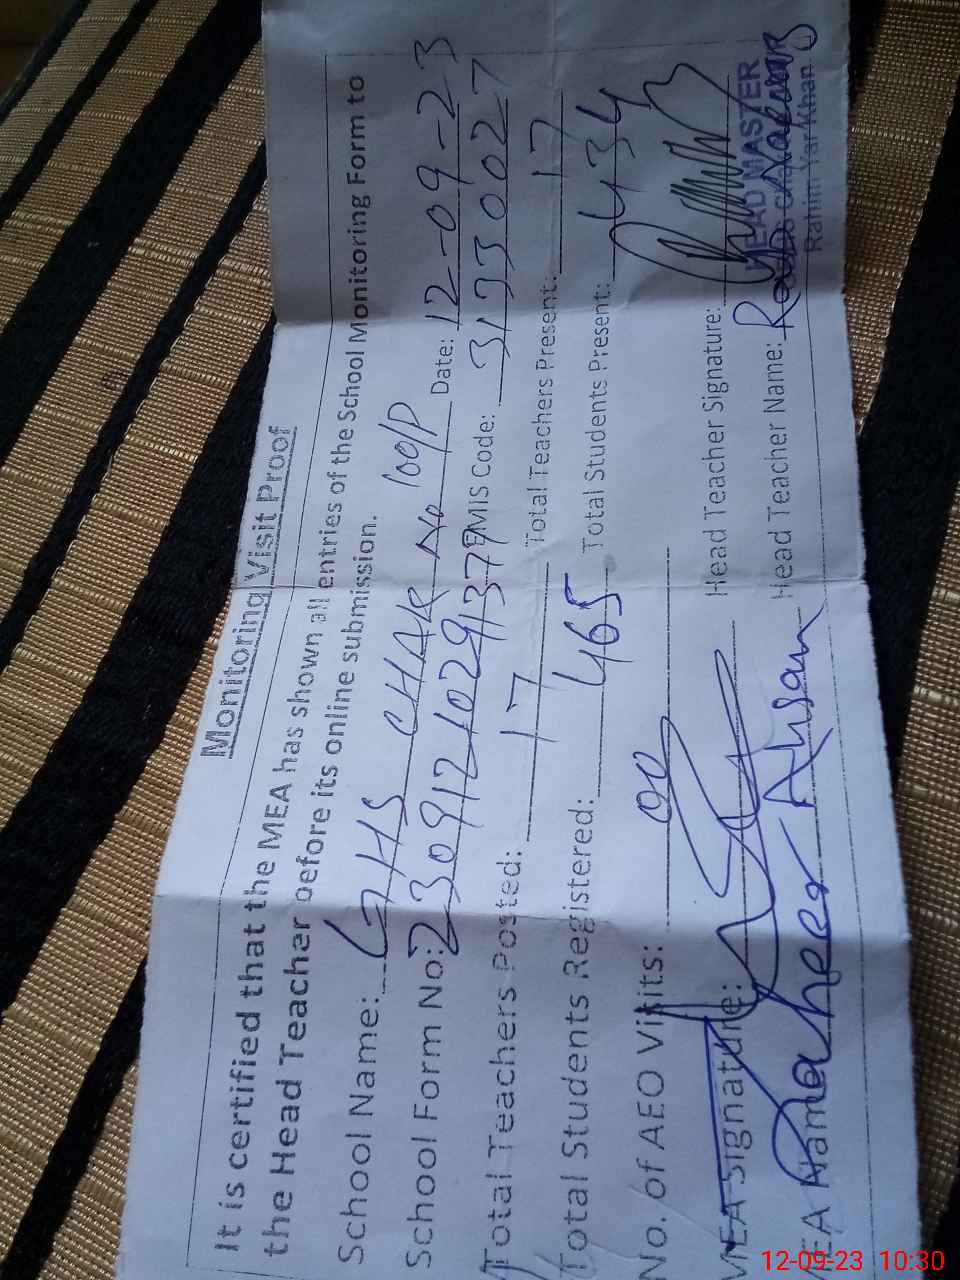 Monitoring Visit Proof
It is certified that the MEA has shown all entries of the School Monitoring Form to
the Head Teacher before its online submission.
School Name: GHS CHAK No 100/P Date: 12-09-23
School Form No: 23091210291379 EMIS Code: 31330027
Total Teachers Posted: 17 Total Teachers Present: 17
Total Students Registered: 465 Total Students Present: 434
No. of AEO Visits: 00
MEA Signature: Head Teacher Signature:
MEA Name Ahsan Head Teacher Name:
HEAD MASTER
Rahim Yar Khan
12-09-23 10:30